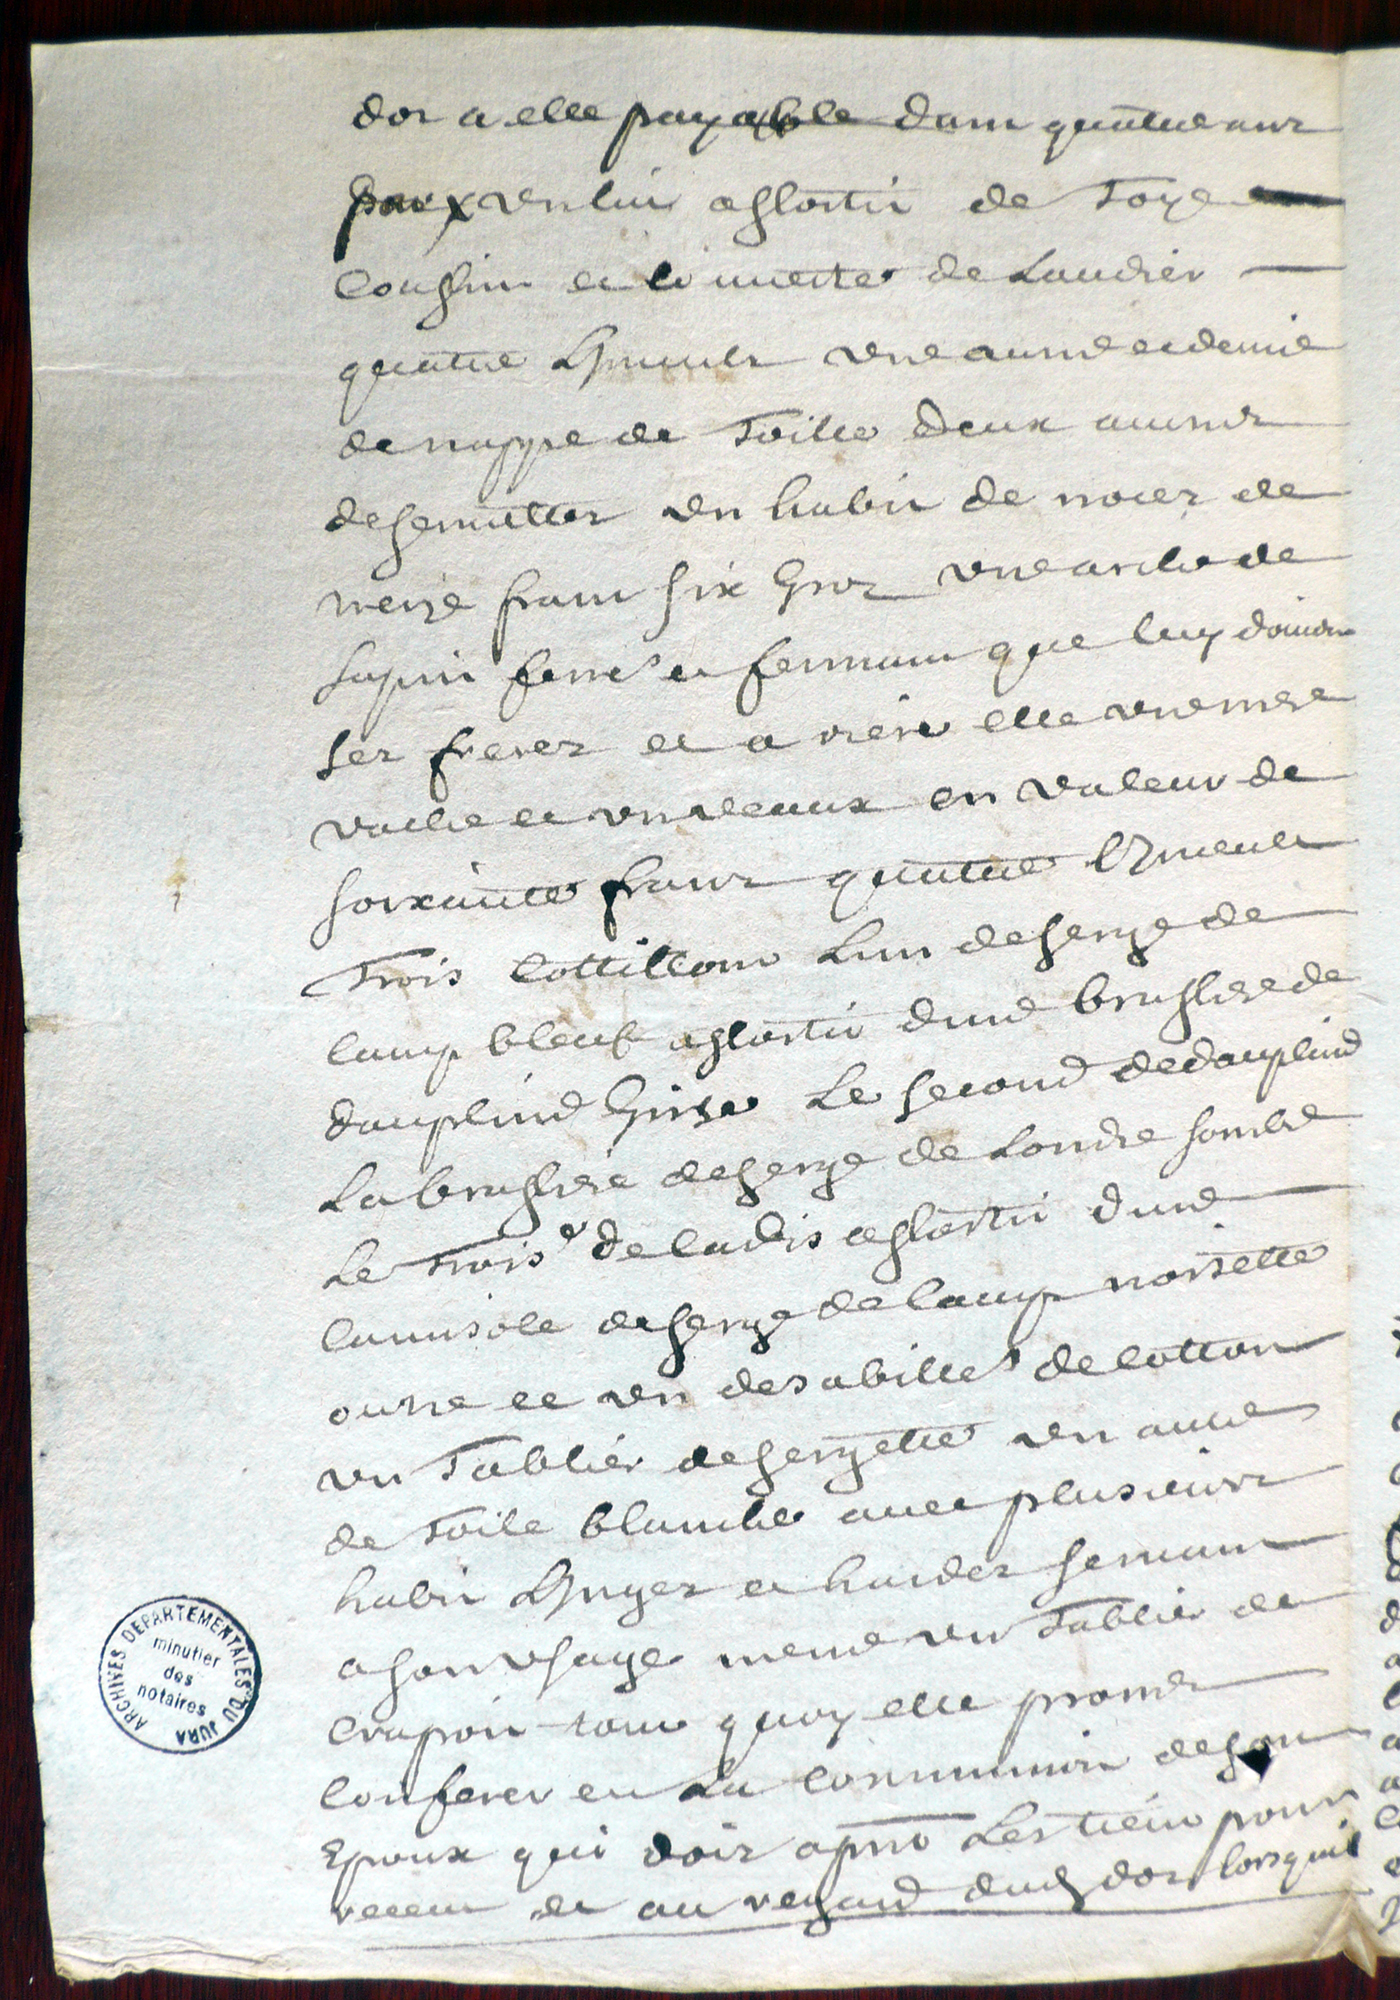 dot a elle payable dans quatre ans
paix un lict assorti de Toye
coussin et couverte de Laudier
quatre Linceuls une aune et demie
de nappe de Toille deux aunes
de serviettes un habit de noces de
treize frans six gros une arche de
sapin ferré et fermant que luy doivent
ses freres et a rière elle une mere
vache et un veaux en valeur de
soixante frans quatre Linceuls
Trois Cottillons Lun de serge de
camp bleuf assorti dune brassiere de
dauphine Grise Le second de dauphine
La brassiere de serge de Londre sombre
Le Trois.e de cadis assorti dune
camisole de serge de camp noisette
outre ce un desabillé de cotton
un Tablier de sergette un autre
de Toile blanche avec plusieurs
habit Linges et hardes servans
a son usage meme un Tablier de
crapon tous quoy elle promet
conferer en La communion de son
Epoux qui doit apres Les tenir pour
receu et au regard dud dot lorsquil
ARCHIVES DEPARTEMENTALES DU JURA
minutier
des
notaires